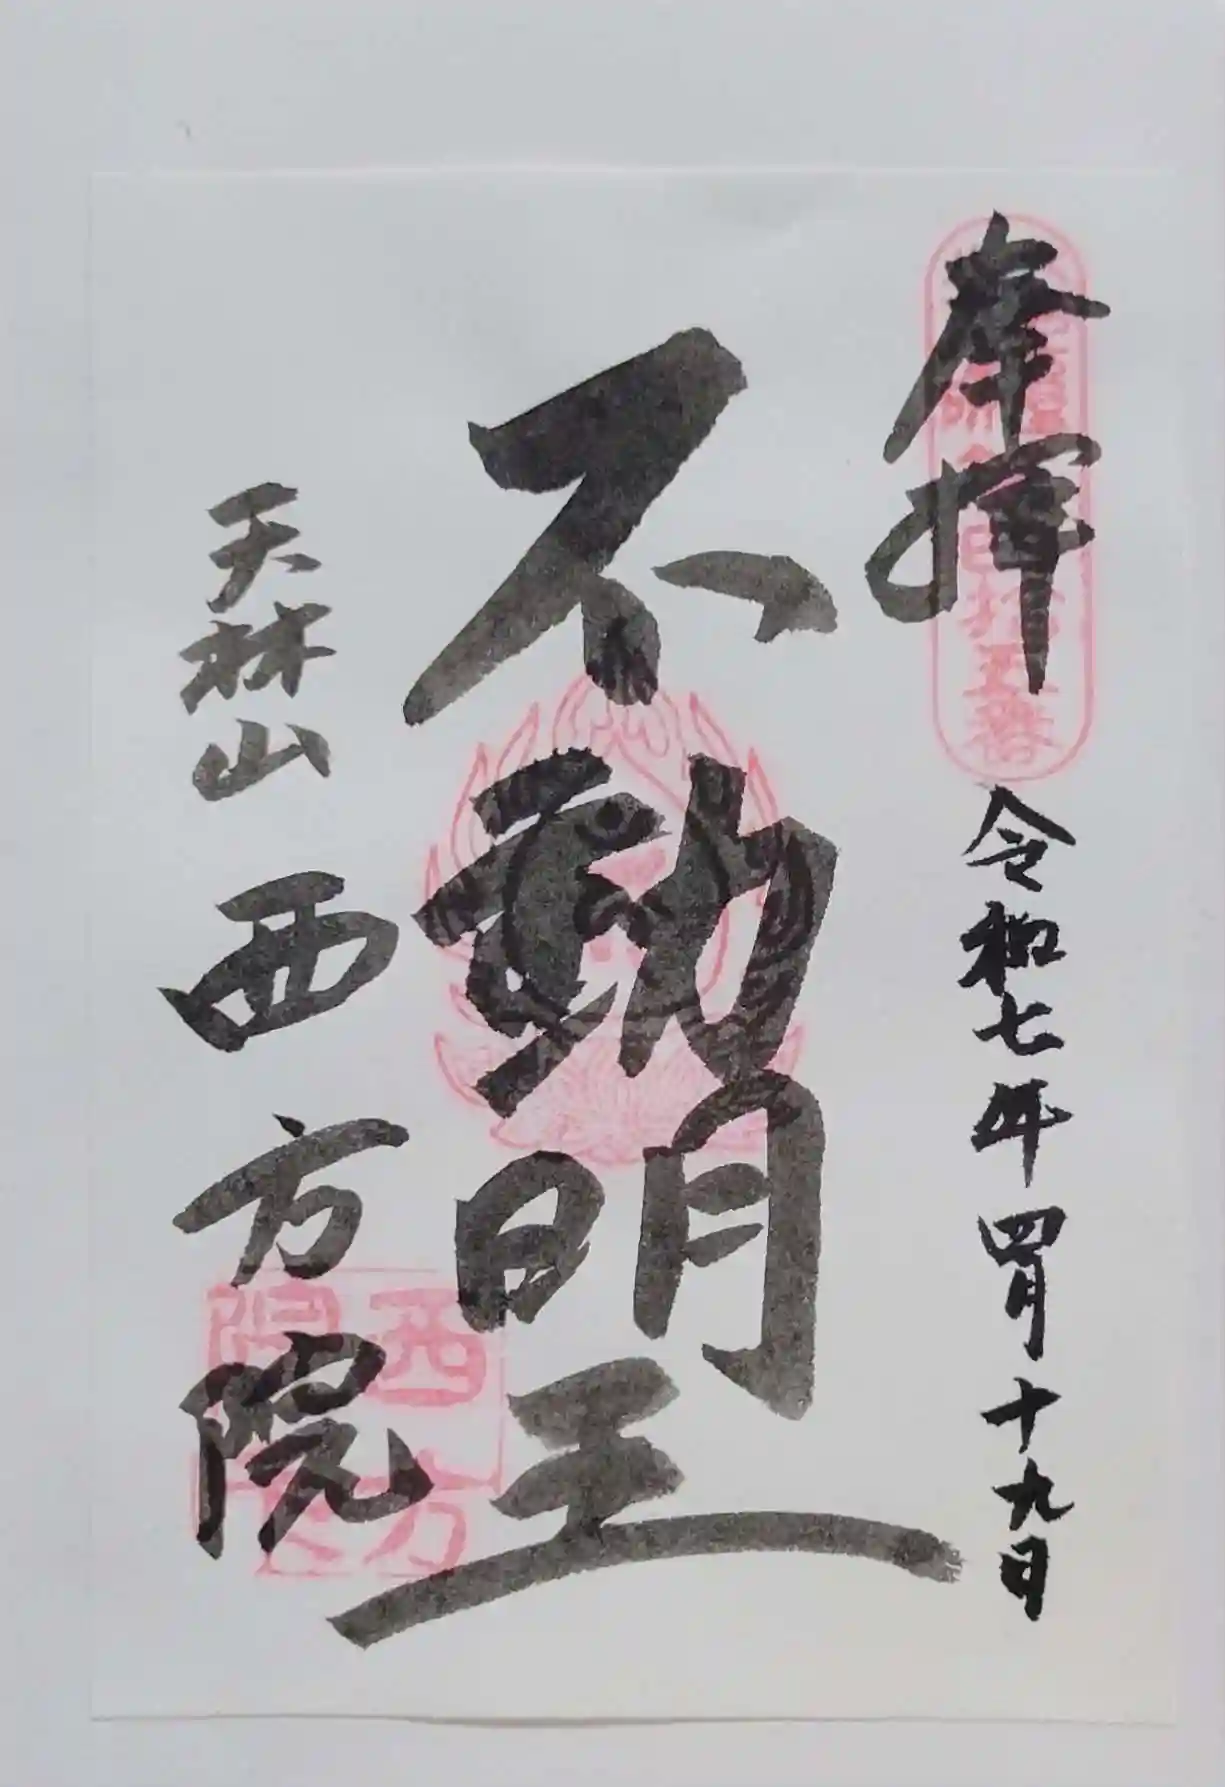 奉拝
令和七年四月十九日
不動明王
天林山
西方院
西方院